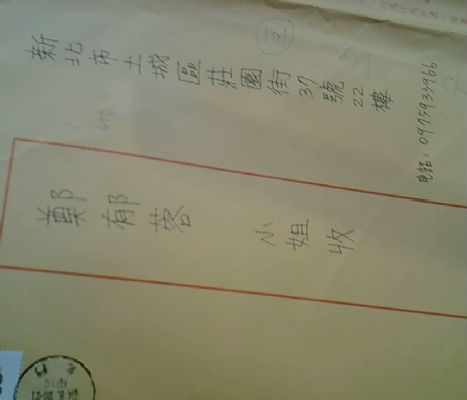 新北市土城區莊園街37號22樓
電話：0975933966
鄭郁蓉 小姐收